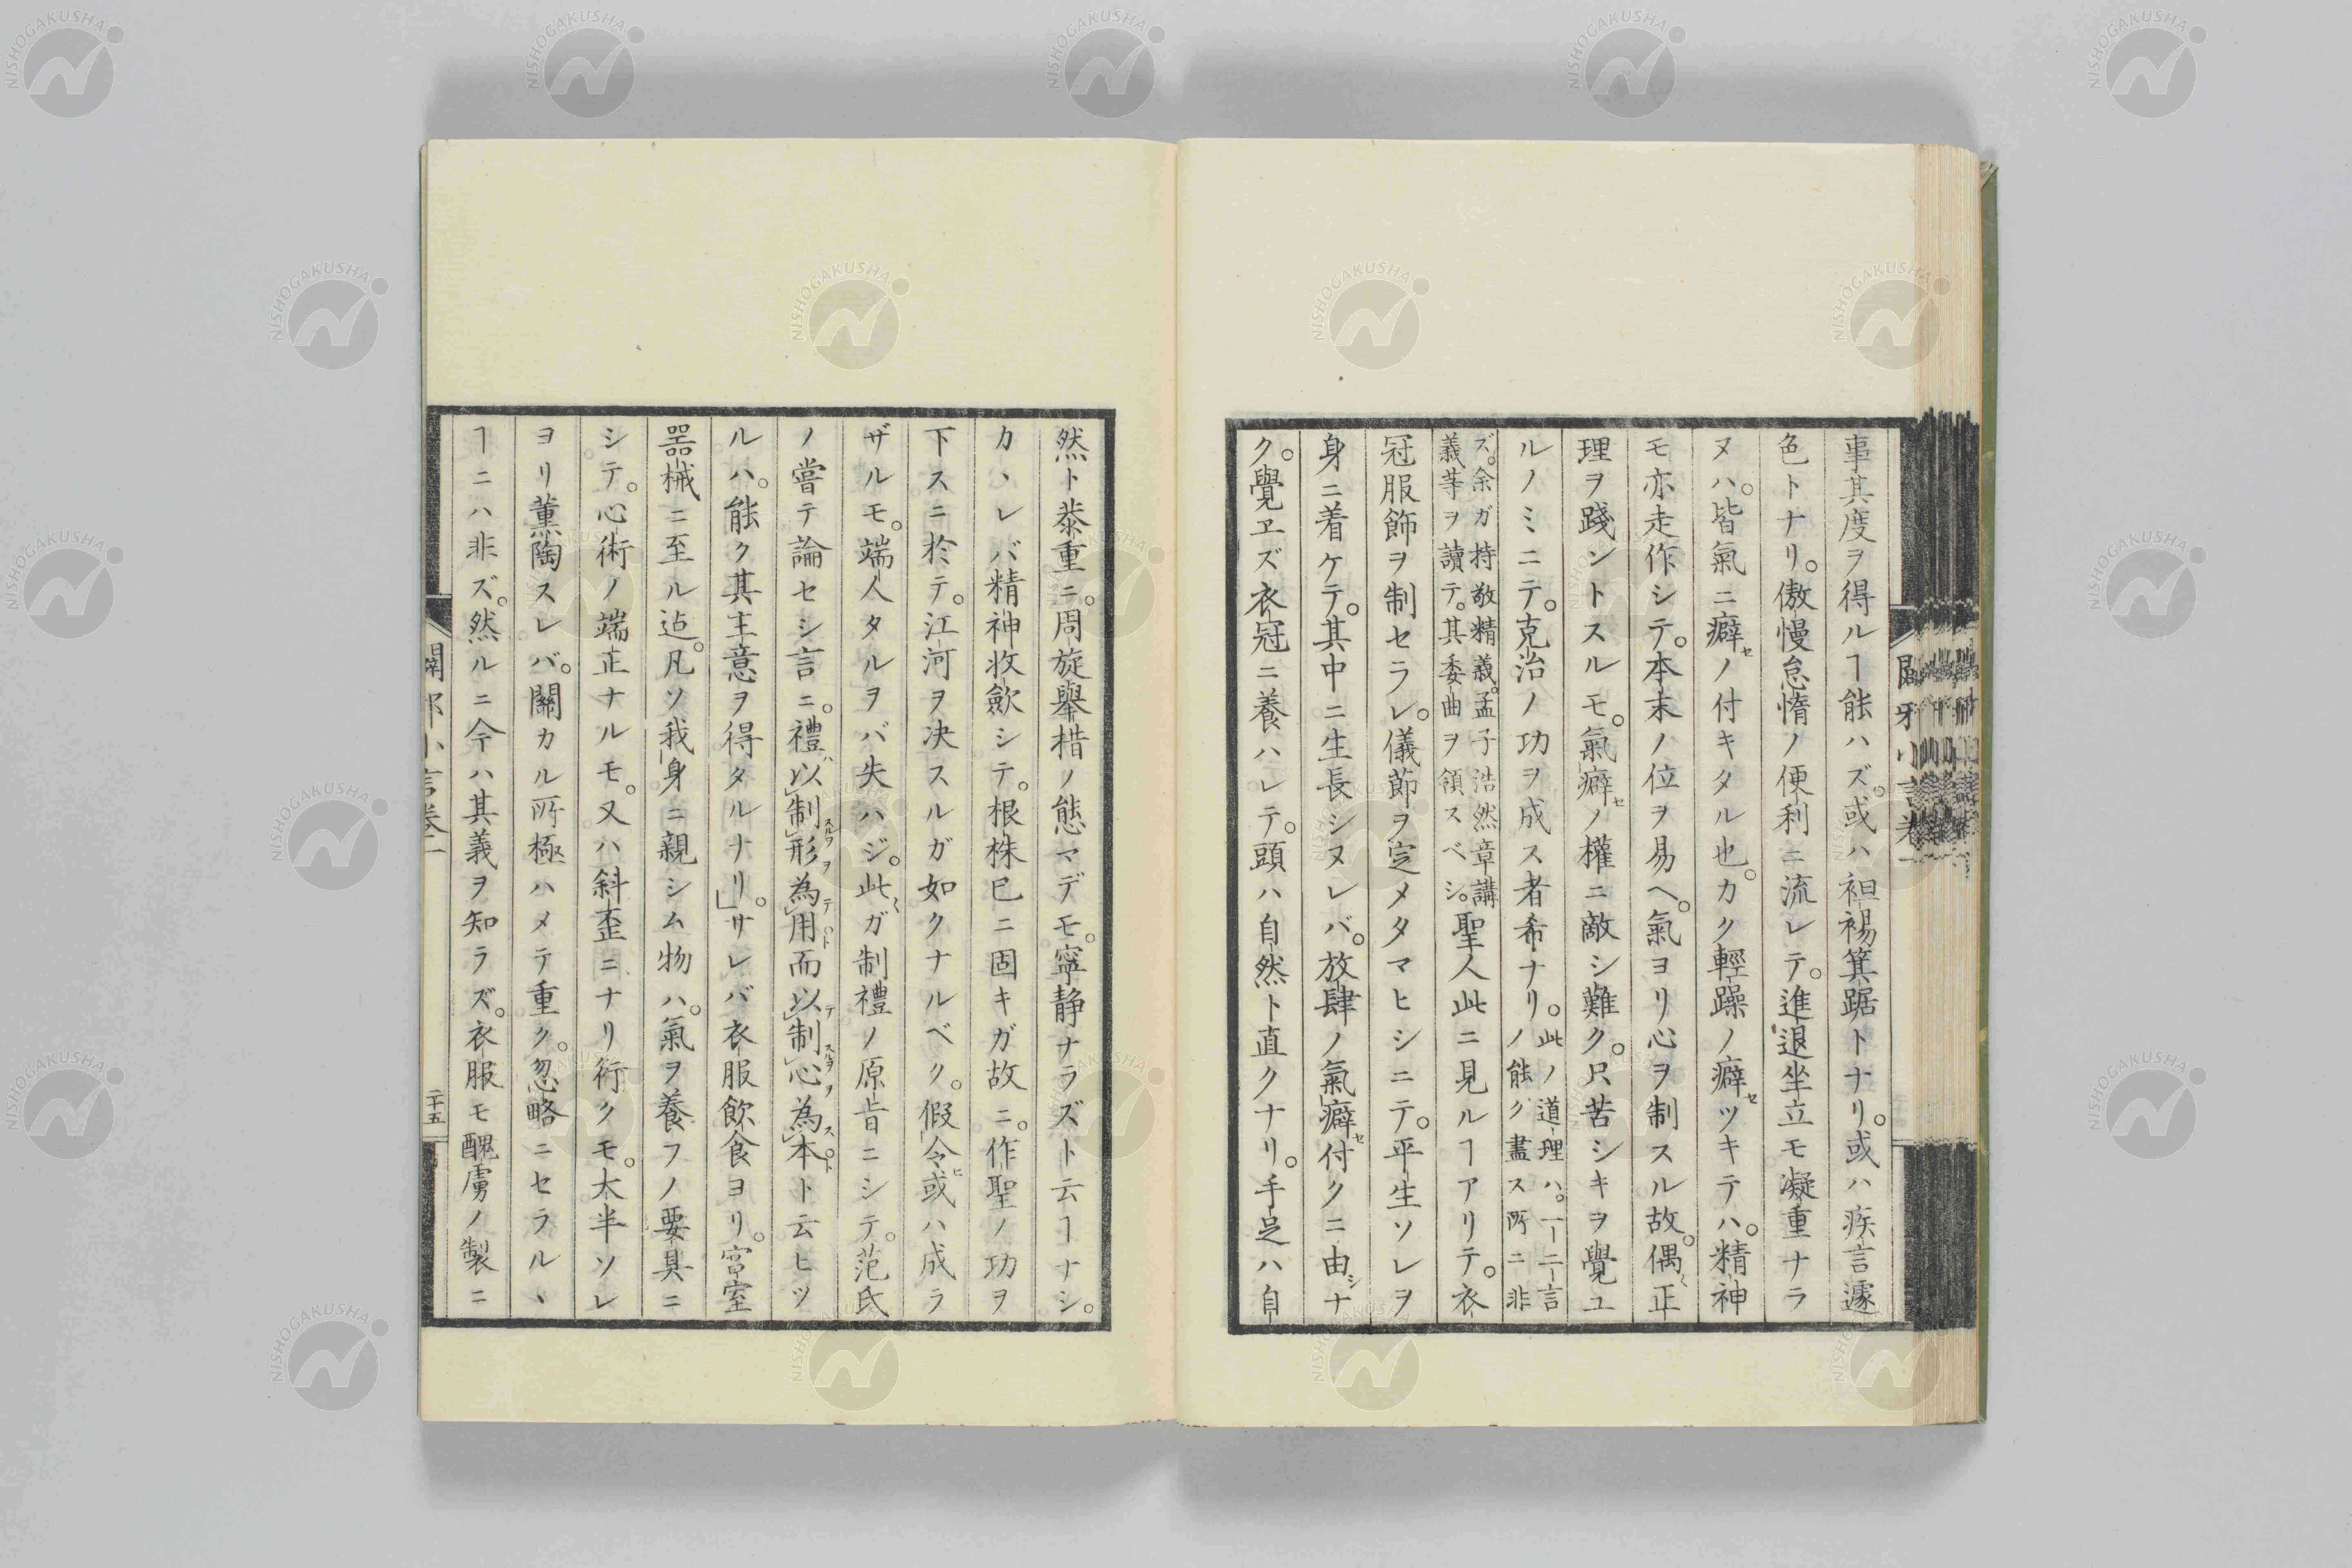 事其度ヲ得ルヿ能ハズ。或ハ袒裼箕踞トナリ。或ハ疾言遽
色トナリ。傲慢怠惰ノ便利ニ流レテ。進退坐立モ凝重ナラ
ヌハ。皆氣ニ癖セノ付キタル也。カク輕躁ノ癖セツキテハ。精神
モ亦走作シテ。本末ノ位ヲ易ヘ。氣ヨリ心ヲ制スル故。偶〻正
理ヲ踐ントスルモ。氣癖セノ權ニ敵シ難ク。只苦シキヲ覺ユ
ルノミニテ。克治ノ功ヲ成ス者希ナリ。此ノ道理ハ。一二言
ノ能ク盡ス所ニ非
ズ。余ガ持敬精義。孟子浩然章講
義等ヲ讀テ。其委曲ヲ領スベシ。聖人此ニ見ルヿアリテ。衣
冠服飾ヲ制セラレ。儀節ヲ定メタマヒシニテ。平生ソレヲ
身ニ着ケテ。其中ニ生長シヌレバ。放肆ノ氣癖セ付クニ由シナ
ク。覺エズ衣冠ニ養ハレテ。頭ハ自然ト直クナリ。手足ハ自
然ト恭重ニ。周旋擧措ノ態マデモ。寧静ナラズト云ヿナシ。
カヽレバ精神收歛シテ。根株已ニ固キガ故ニ。作聖ノ功ヲ
下スニ於テ。江河ヲ决スルガ如クナルベク。假令ヒ或ハ成ラ
ザルモ。端人タルヲバ失ハジ。此〻ガ制禮ノ原旨ニシテ。范氏
ノ嘗テ論セシ言ニ。禮ハ以制スルヲ形ヲ為テ用ト而以テ制スルヲ心ヲ為ス本トト云ヒツ
ルハ。能ク其主意ヲ得タルナリ。」サレバ衣服飲食ヨリ。宮室
器械ニ至ル迠。凡ソ我身ニ親シム物ハ。氣ヲ養フノ要具ニ
シテ。心術ノ端正ナルモ。又ハ斜歪ニナリ衍クモ。大半ソレ
ヨリ薫陶スレバ。關カル所極ハメテ重ク。忽略ニセラルヽ
ヿニハ非ズ。然ルニ今ハ其義ヲ知ラズ。衣服モ醜虜ノ製ニ
二十五